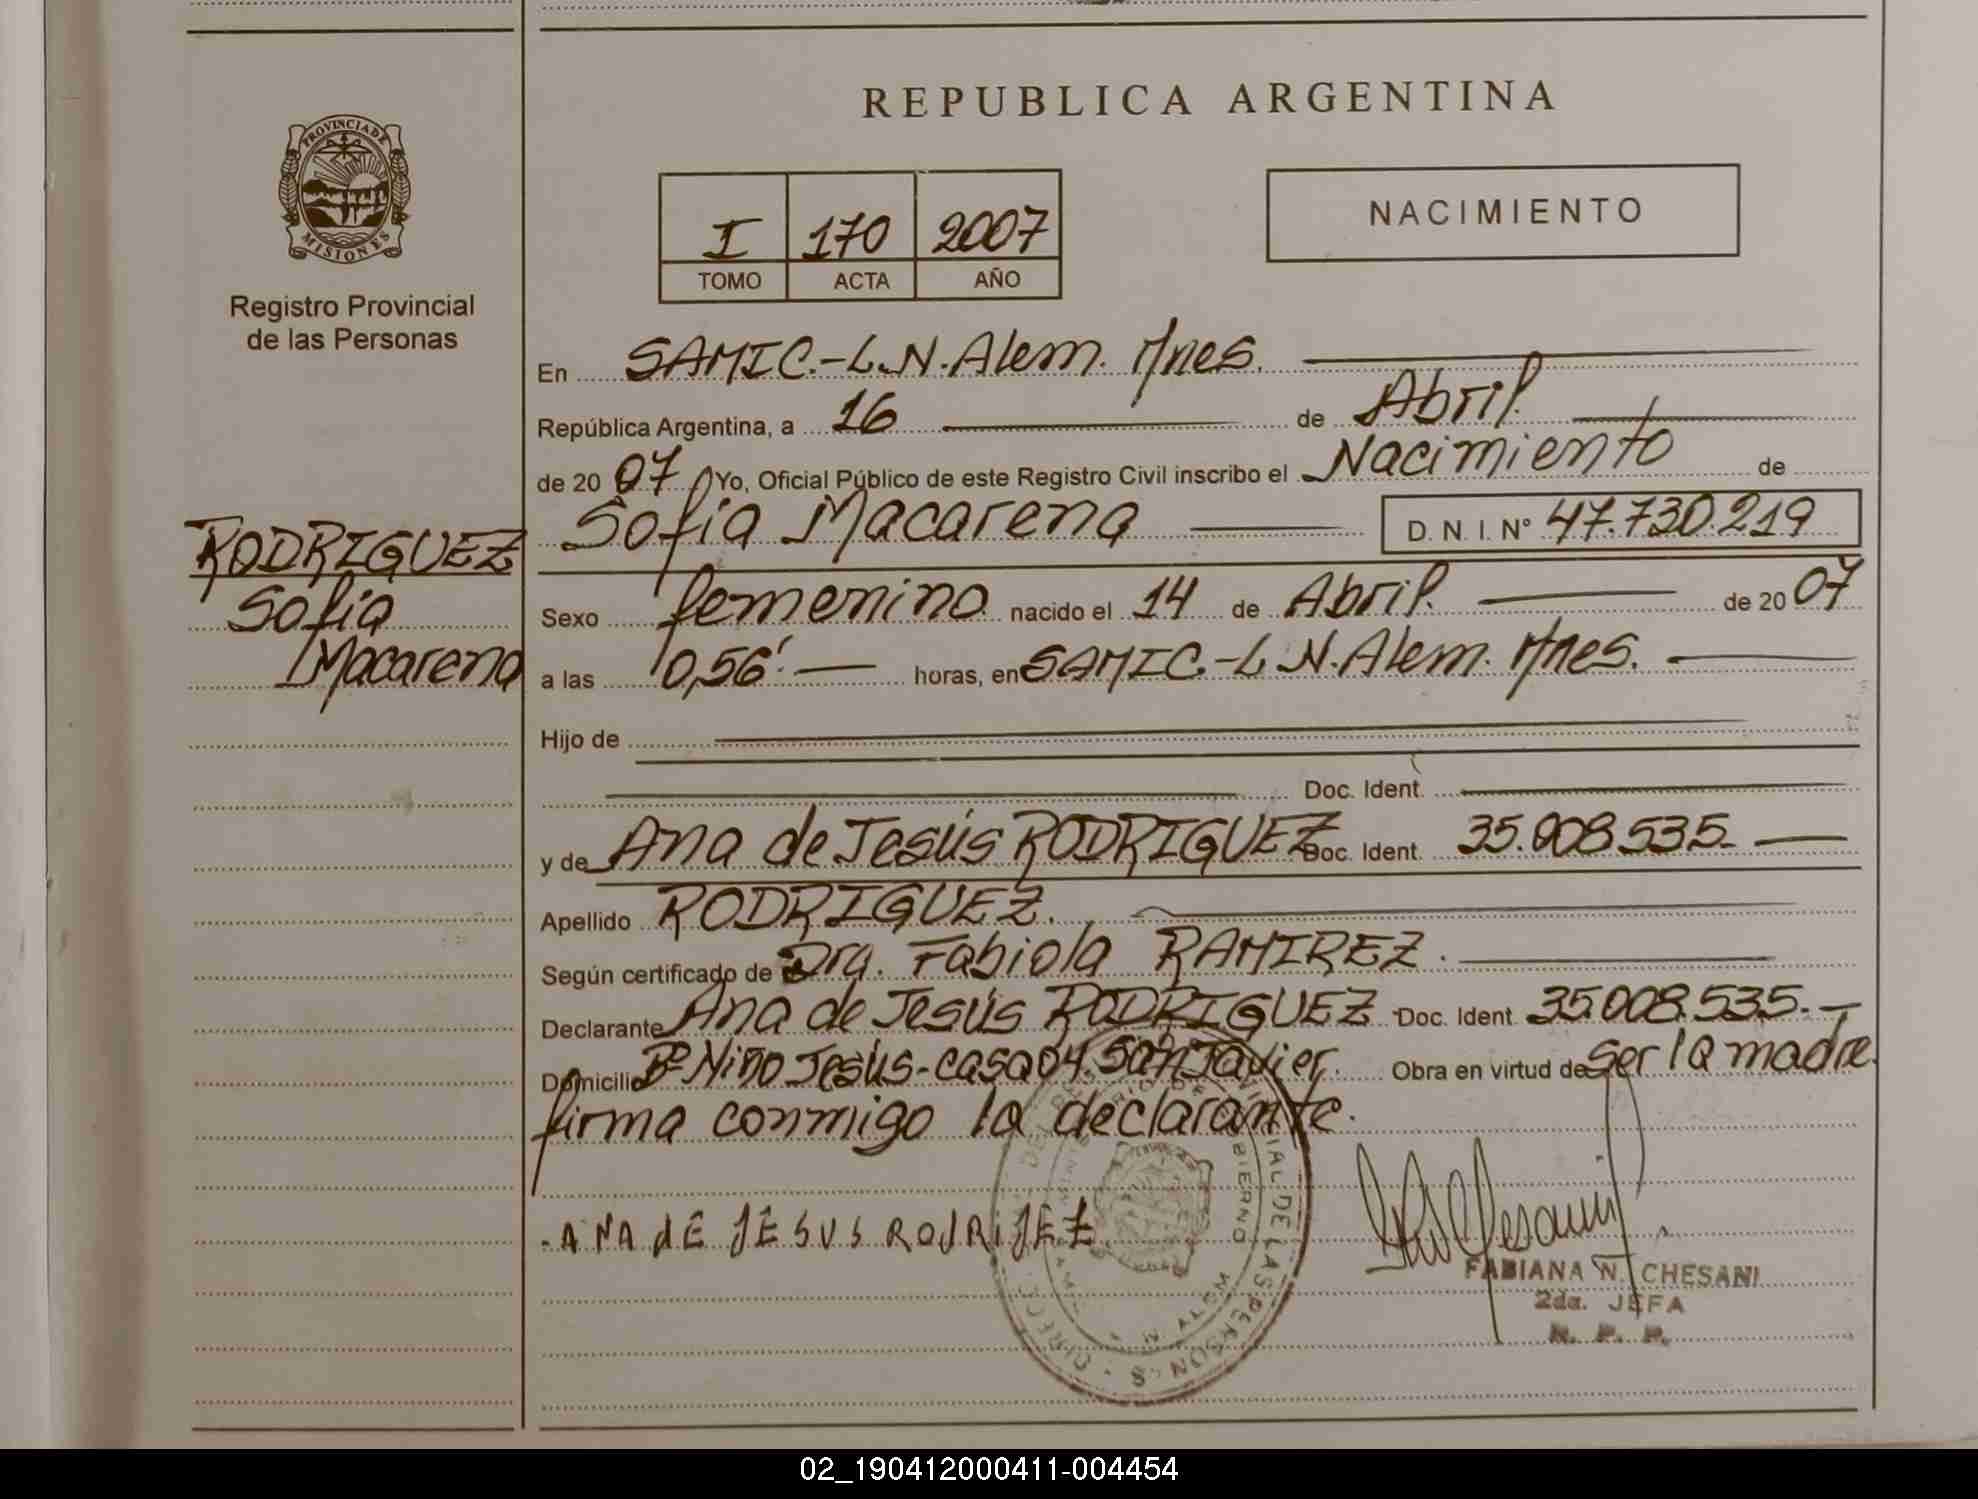 REPUBLICA ARGENTINA
PROVINCIA DE
MISIONES
Registro Provincial
de las Personas
I 170 2007
TOMO ACTA AÑO
NACIMIENTO
En SAMIC.-L.N.Alem. Mnes.
República Argentina, a 16 de Abril.
de 20 07 Yo, Oficial Público de este Registro Civil inscribo el Nacimiento de
Sofia Macarena D. N. I. Nº 47.730.219
RODRIGUEZ
Sofia
Macarena
Sexo femenino nacido el 14 de Abril. de 20 07
a las 0,56'. horas, en SAMIC.-L.N.Alem. Mnes.
Hijo de
Doc. Ident.
y de Ana de Jesús RODRIGUEZ Doc. Ident. 35.008.535.-
Apellido RODRIGUEZ.
Según certificado de Dra. Fabiola RAMIREZ.
Declarante Ana de Jesús RODRIGUEZ Doc. Ident. 35.008.535.-
Domicilio Bº Niño Jesús-casa 04. San Javier. Obra en virtud de Ser la madre.
firma conmigo la declarante.
ANA dE JESUS ROdRiJEZ
FABIANA N. CHESANI
2da. JEFA
R. P. P.
02_190412000411-004454